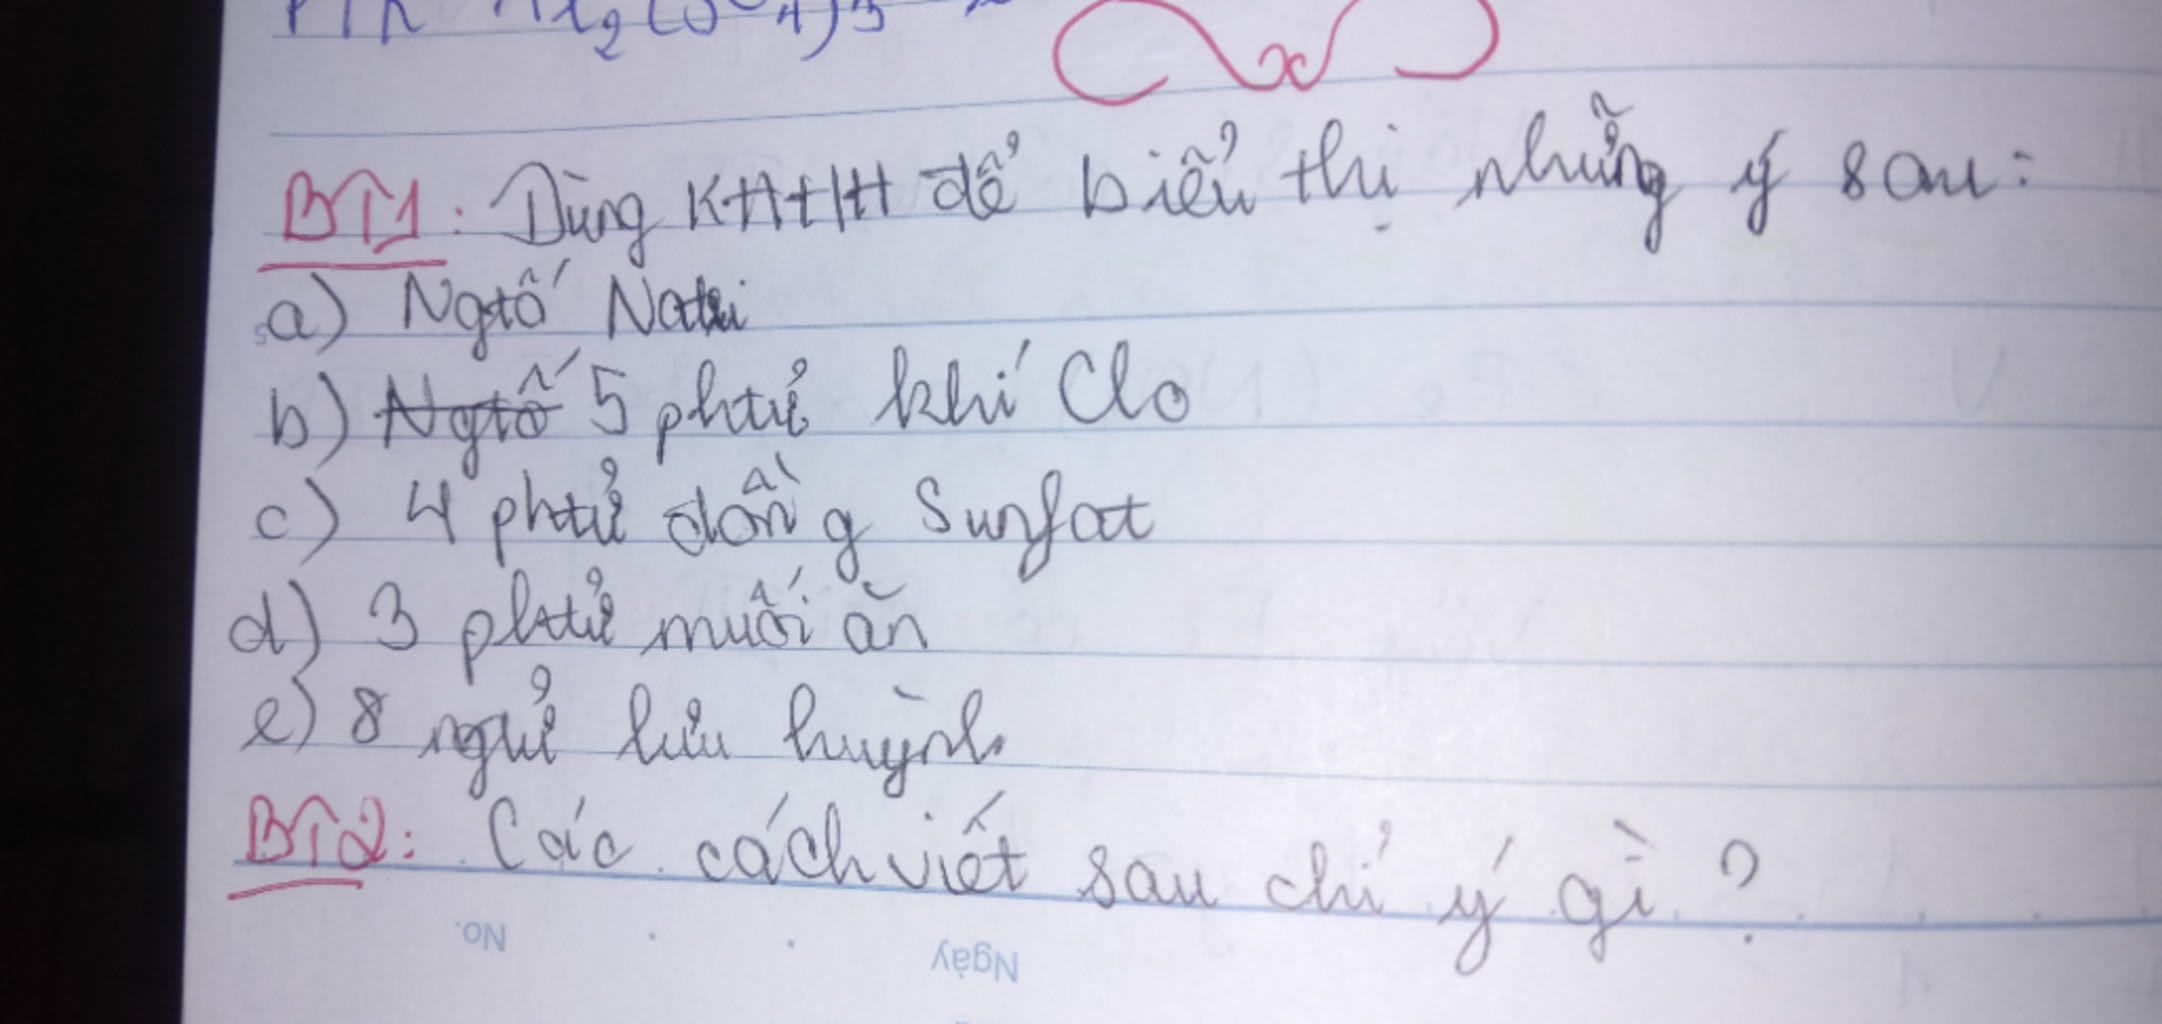 BT1: Dùng KHHH để biểu thị những ý sau:
a) Ngtố Natri
b) Ngtố 5 phtử khí Clo
c) 4 phtử đồng Sunfat
d) 3 phtử muối ăn
e) 8 ngtử lưu huỳnh
BT2: Các cách viết sau chỉ ý gì?
No.
Ngày